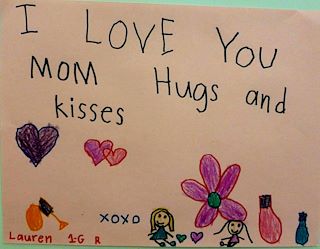 I LOVE YOU
MOM Hugs and
kisses
xoxo
Lauren 1-G R